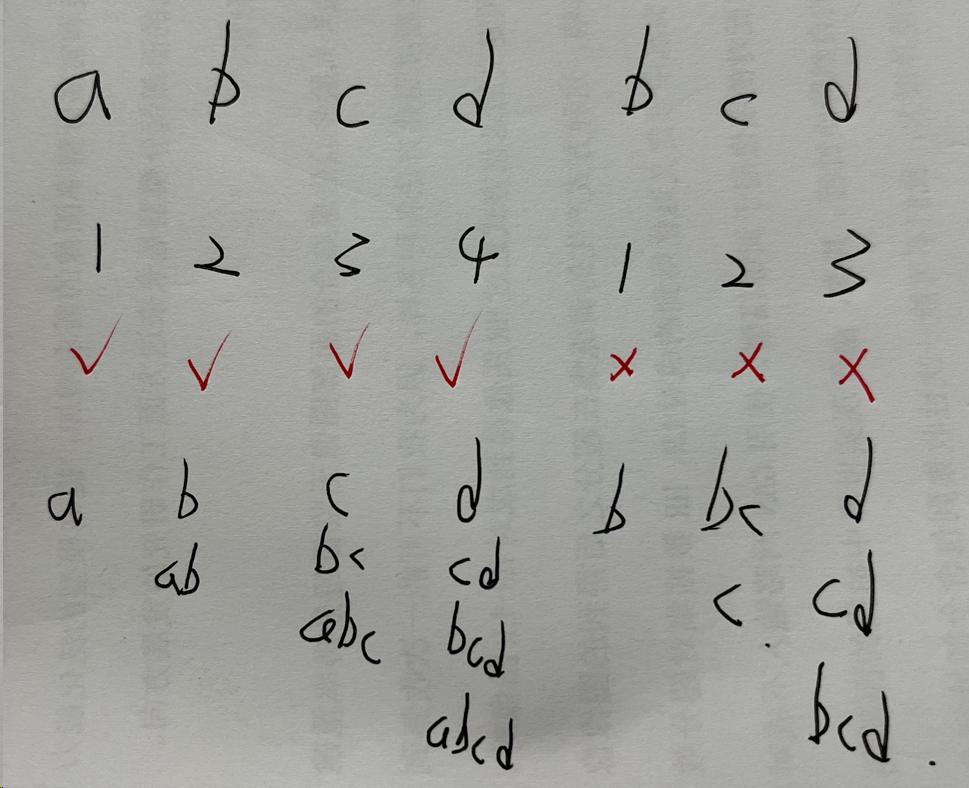 a b c d b c d
1 2 3 4 1 2 3
✓ ✓ ✓ ✓ × × ×
a b c d b bc d
ab bc cd c. cd
abc bcd
abcd bcd.